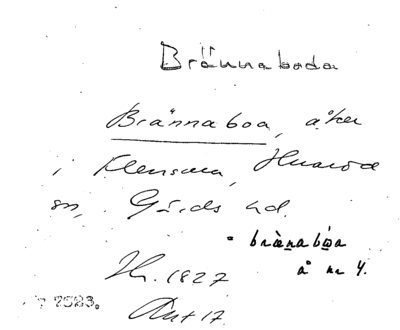 Brännaboda
Brännaboa, åker
i Klensma, Hvaröd
sn, Gärds hd.
bränabǫa
å nr 4.
Hr. 1827
Ant 17.
7523.